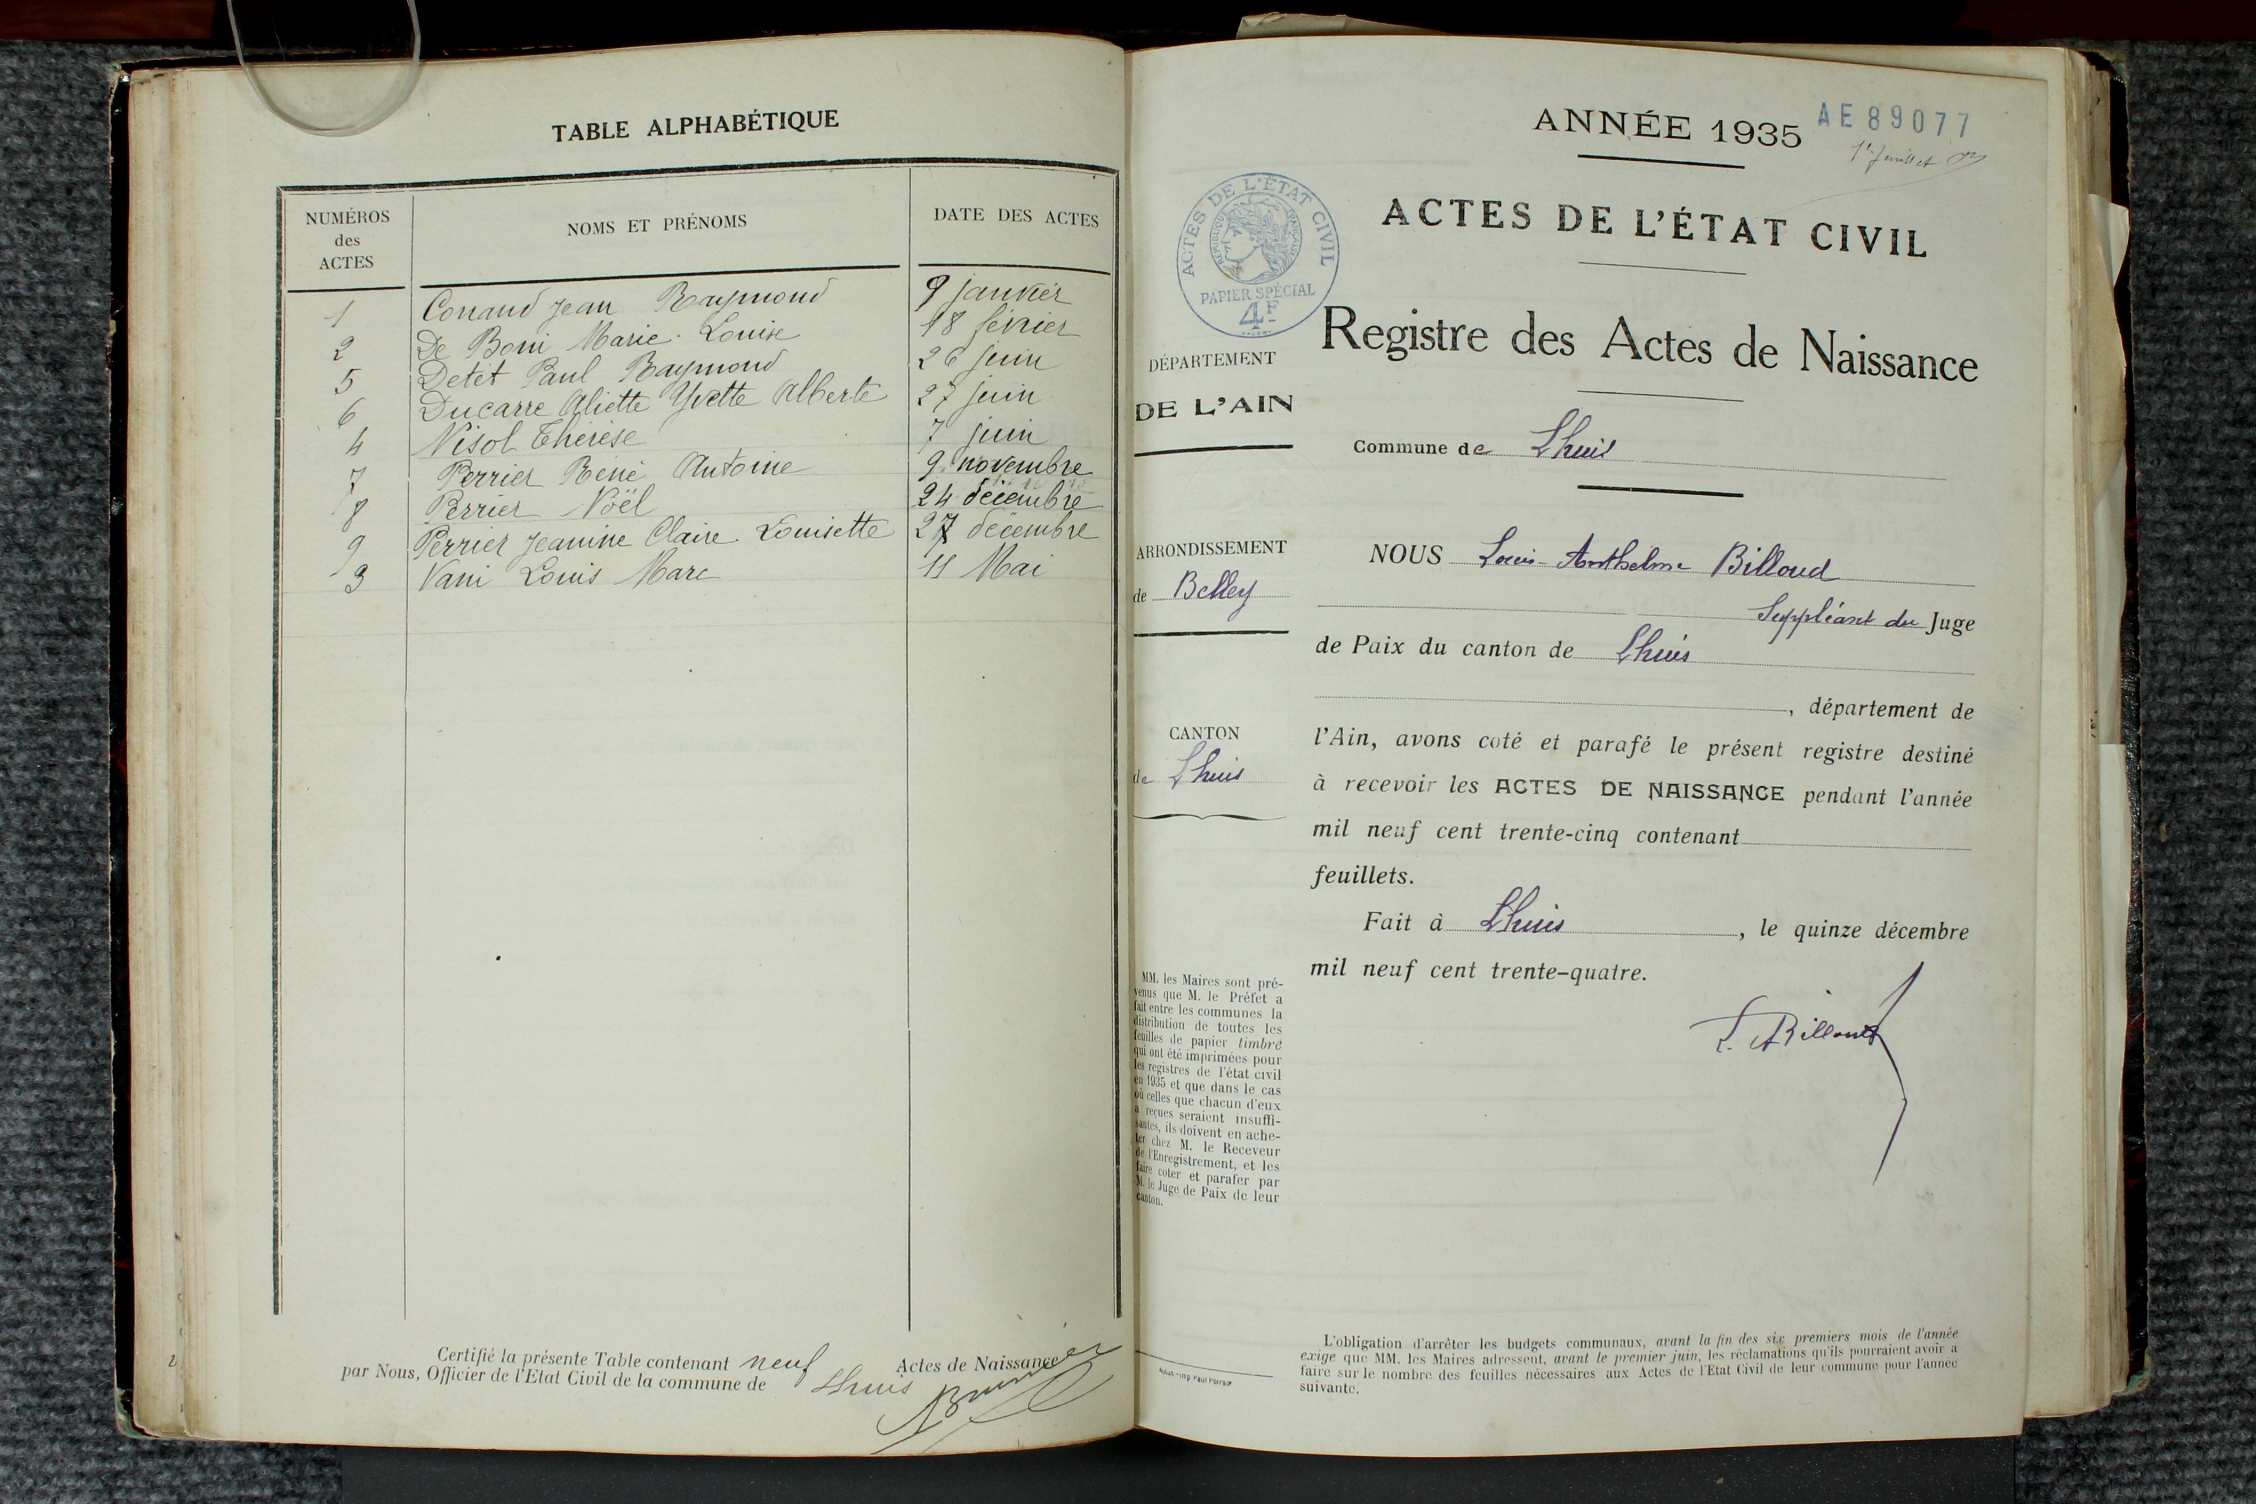 TABLE ALPHABÉTIQUE
NUMÉROS des ACTES NOMS ET PRÉNOMS DATE DES ACTES
1 Conand Jean Raymond 9 janvier
2 De Boni Marie-Louise 18 février
5 Detet Paul Raymond 26 juin
6 Ducarre Aliette Yvette Alberte 27 juin
4 Nisol Thérèse 7 juin
7 Perrier René Antoine 9 novembre
8 Perrier Noël 24 décembre
9 Perrier Jeanine Claire Louisette 27 décembre
3 Vani Louis Marc 11 Mai
Certifié la présente Table contenant neuf Actes de Naissance
par Nous, Officier de l'Etat Civil de la commune de Lhuis
ANNÉE 1935
AE 89077
1er feuillet
ACTES DE L'ÉTAT CIVIL
RÉPUBLIQUE FRANÇAISE
PAPIER SPÉCIAL
4F
ACTES DE L'ÉTAT CIVIL
Registre des Actes de Naissance
DÉPARTEMENT
DE L'AIN
Commune de Lhuis
ARRONDISSEMENT
de Belley
CANTON
de Lhuis
NOUS Louis-Anthelme Billoud
Suppléant du Juge
de Paix du canton de Lhuis
, département de
l'Ain, avons coté et parafé le présent registre destiné
à recevoir les ACTES DE NAISSANCE pendant l'année
mil neuf cent trente-cinq contenant
feuillets.
Fait à Lhuis, le quinze décembre
mil neuf cent trente-quatre.
L. Billoud
MM. les Maires sont pré-
venus que M. le Préfet a
fait entre les communes la
distribution de toutes les
feuilles de papier timbré
qui ont été imprimées pour
les registres de l'état civil
en 1935 et que dans le cas
où celles que chacun d'eux
a reçues seraient insuffi-
santes, ils doivent en ache-
ter chez M. le Receveur
de l'Enregistrement, et les
faire coter et parafer par
M. le Juge de Paix de leur
canton.
L'obligation d'arrêter les budgets communaux, avant la fin des six premiers mois de l'année
exige que MM. les Maires adressent, avant le premier juin, les réclamations qu'ils pourraient avoir à
faire sur le nombre des feuilles nécessaires aux Actes de l'Etat Civil de leur commune pour l'année
suivante.